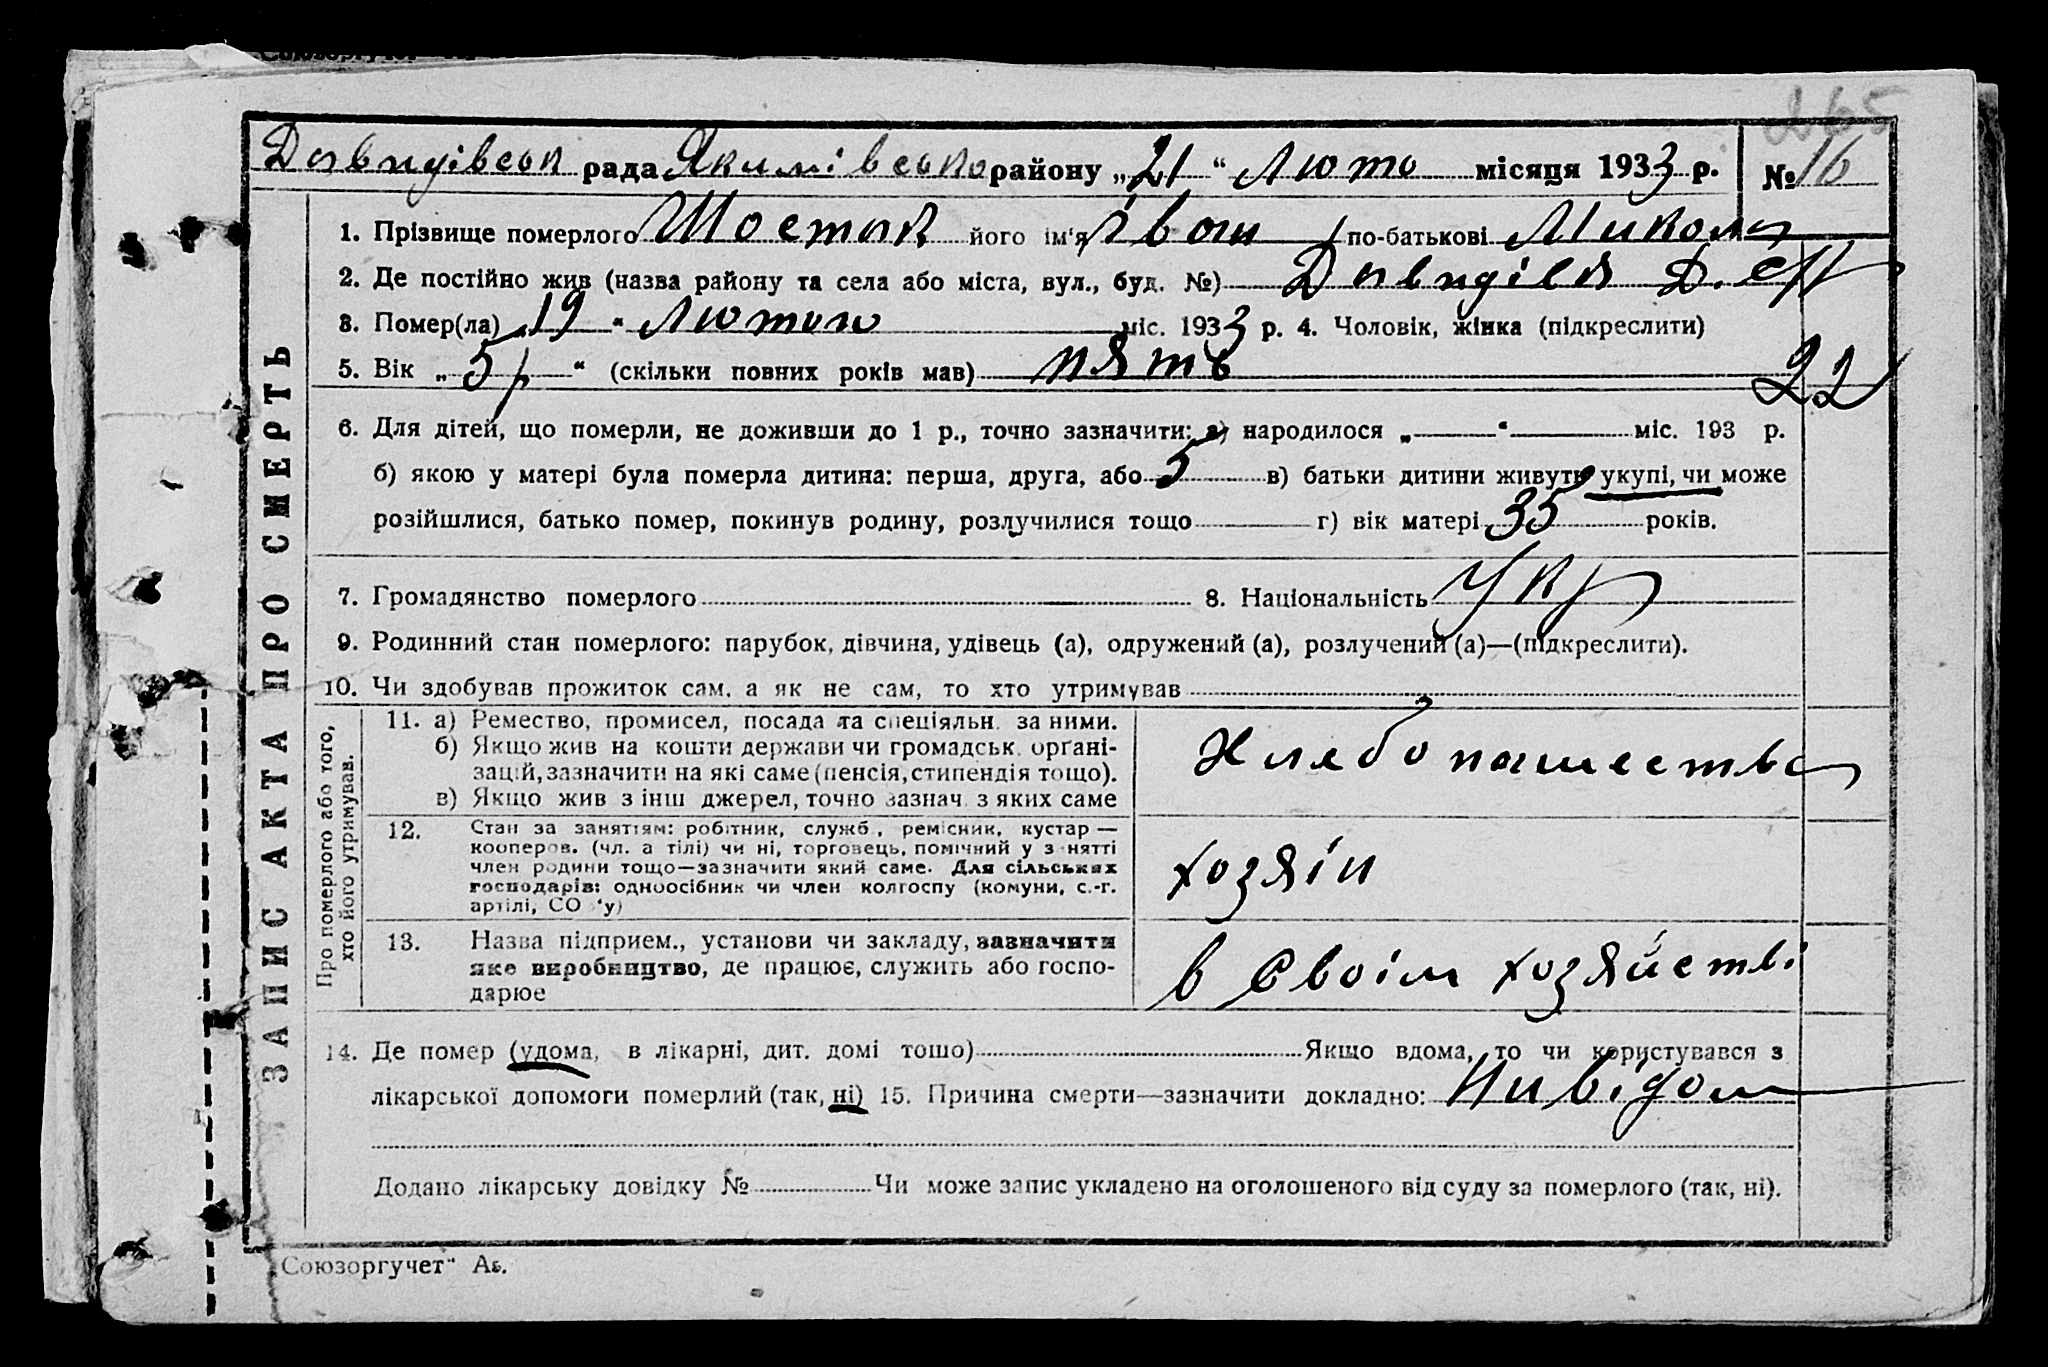 265
Давидівськ рада Якимівсько району „21“ Люто місяця 1933 р. № 16
1. Прізвище померлого Шостак його ім'я Іван по-батькові Микола
2. Де постійно жив (назва району та села або міста, вул., буд. №) Давидівка
3. Помер(ла) „19“ Лютого міс. 1933 р. 4. Чоловік, жінка (підкреслити)
5. Вік „5 р“ (скільки повних років мав) пять
22
6. Для дітей, що померли, не доживши до 1 р., точно зазначити: а) народилося „ “ міс. 193 р.
б) якою у матері була померла дитина: перша, друга, або 5 в) батьки дитини живуть укупі, чи може
розійшлися, батько помер, покинув родину, розлучилися тощо г) вік матері 35 років.
7. Громадянство померлого 8. Національність Укр
9. Родинний стан померлого: парубок, дівчина, удівець (а), одружений (а), розлучений (а)—(підкреслити).
10. Чи здобував прожиток сам, а як не сам, то хто утримував
ЗАПИС АКТА ПРО СМЕРТЬ
Про померлого або того,
хто його утримував.
11. а) Ремество, промисел, посада та спеціяльн. за ними.
б) Якщо жив на кошти держави чи громадськ. орґані-
зацій, зазначити на які саме (пенсія, стипендія тощо).
в) Якщо жив з інш джерел, точно зазнач. з яких саме
Хлябопашество
12. Стан за заняттям: робітник, служб., ремісник, кустар —
кооперов. (чл. а тілі) чи ні, торговець, помічний у з нятті
член родини тощо—зазначити який саме. Для сільських
господарів: одноосібник чи член колгоспу (комуни, с.-г.
артілі, СО 'у)
хозяін
13. Назва підприєм., установи чи закладу, зазначити
яке виробництво, де працює, служить або госпо-
дарює
в своім хозяйстві
14. Де помер (удома, в лікарні, дит. домі тощо) Якщо вдома, то чи користувався з
лікарської допомоги померлий (так, ні) 15. Причина смерти—зазначити докладно: Нивідом
Додано лікарську довідку № Чи може запис укладено на оголошеного від суду за померлого (так, ні).
„Союзоргучет“ Аз.